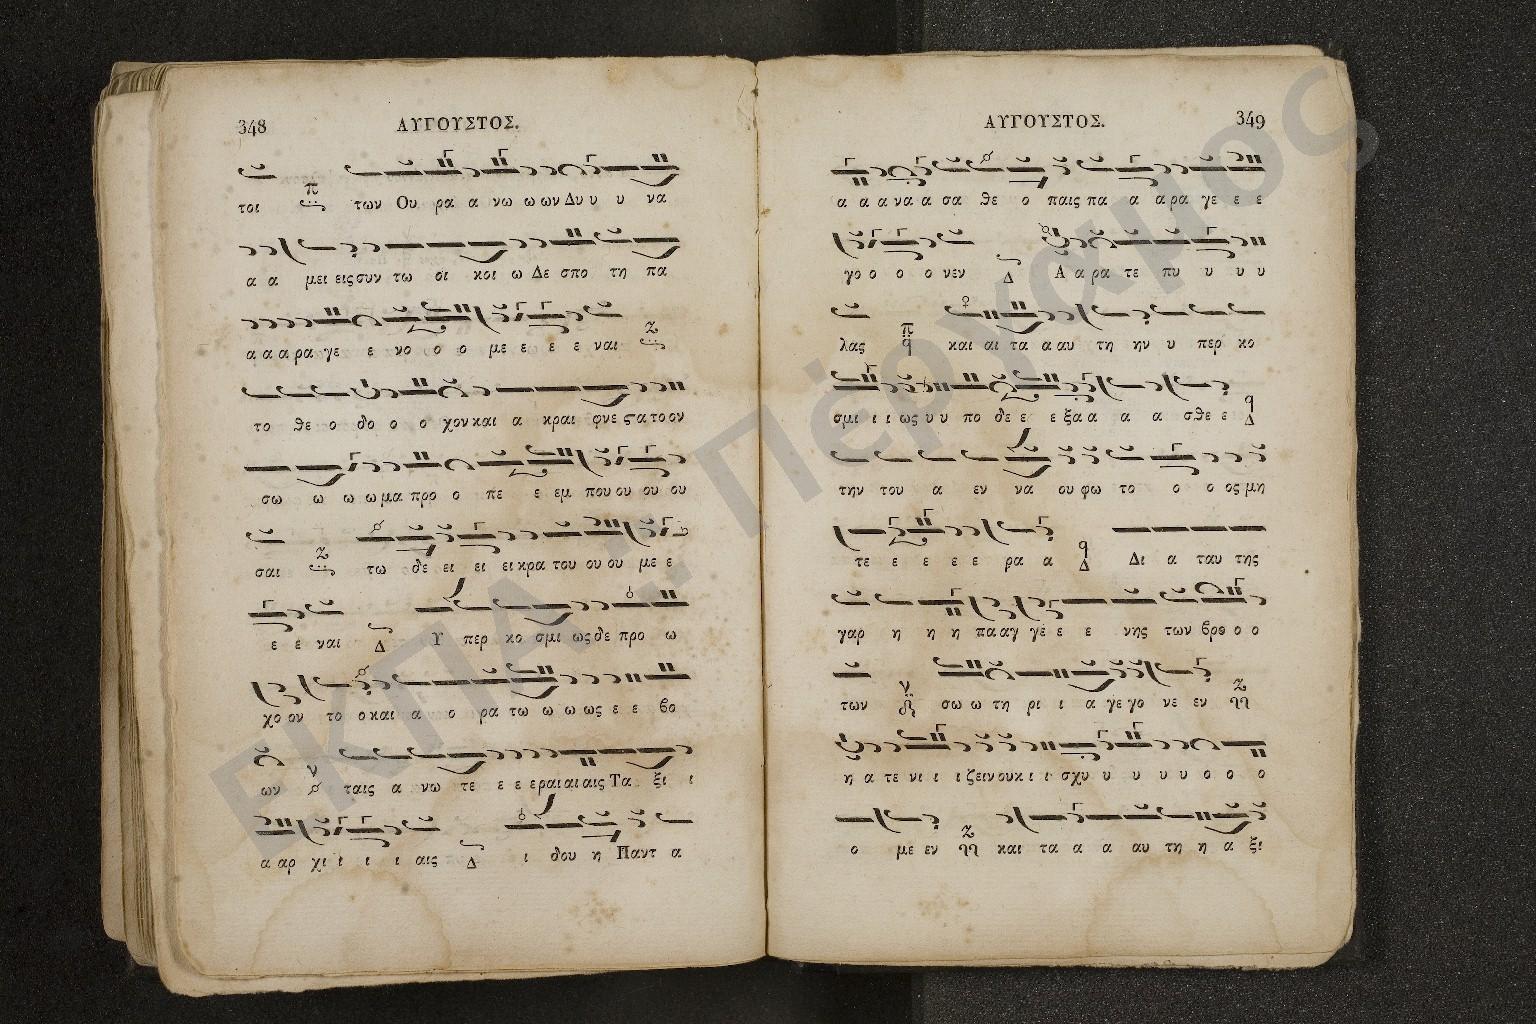 348 ΑΥΓΟΥΣΤΟΣ.
τοι π των Ου ρα α νω ω ων Δυ υ υ να
α α μει εις συν τω οι κοι ω Δε σπο τη πα
α α α ρα γε ε νο ο ο με ε ε ε ναι Ζ
το θε ο δο ο ο χον και α κραι φνε ϛα το ον
σω ω ω ω μα προ ο πε ε εμ που ου ου ου
σαι Ζ τω δε ει ει ει κρα του ου ου με ε
ε ε ναι Δ Υ περ κο σμι ως δε προ ω
χο ον το ο και α ο ρα τω ω ω ως ε ε βο
ων ν ταις α νω τε ε ε ε ραι αι αις Τα ξι ι
α αρ χι ι ι ι αις Δ ι δου η Παντ α
ΑΥΓΟΥΣΤΟΣ. 349
α α α να α σα θε ο παις πα α α ρα γε ε ε
γο ο ο ο νεν Δ Α α ρα τε πυ υ υ υ
λας π q και αι τα α αυ τη ην υ περ κο
σμι ι ι ως υ υ πο δε ε ε ξα α α α σθε ε Δ
την του α εν να ου φω το ο ο ος μη
τε ε ε ε ε ρα α Δ Δι α ταυ της
γαρ η η η πα αγ γε ε ε νης των βρο ο ο
των ν σω ω τη ρι ι α γε γο νε εν Ζ
η α τε νι ι ι ζειν ουκ ι ι σχυ υ υ υ υ ο ο ο
ο με εν Ζ και τα α α αυ τη η α ξι
ΕΚΠΑ. Πέργαμος